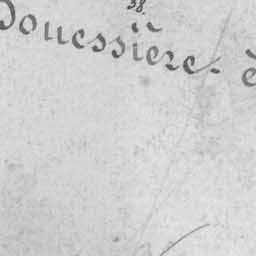 38
Douessière. è